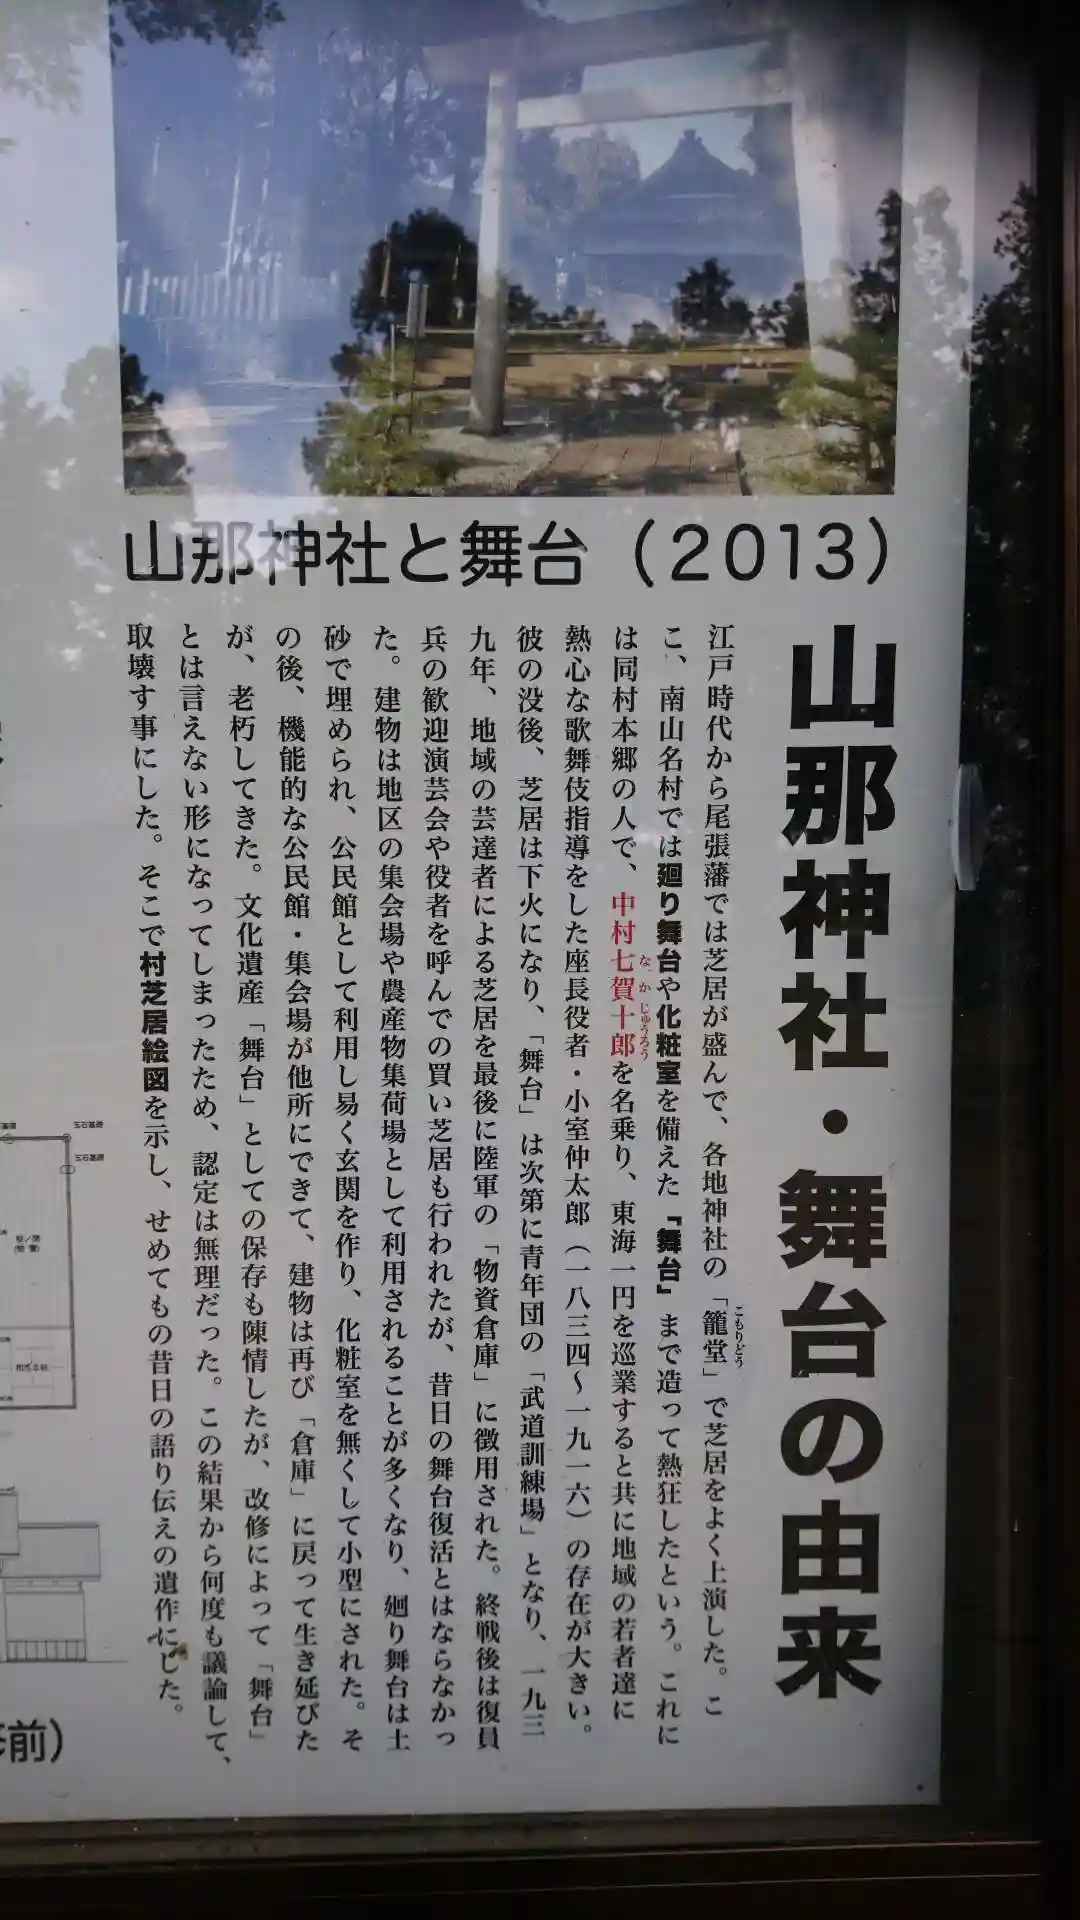 山那神社と舞台（2013）
山那神社・舞台の由来
江戸時代から尾張藩では芝居が盛んで、各地神社の「籠堂」で芝居をよく上演した。こ
こもりどう
こ、南山名村では廻り舞台や化粧室を備えた『舞台』まで造って熱狂したという。これに
は同村本郷の人で、中村七賀十郎を名乗り、東海一円を巡業すると共に地域の若者達に
なかじゅうろう
熱心な歌舞伎指導をした座長役者・小室仲太郎（一八三四〜一九一六）の存在が大きい。
彼の没後、芝居は下火になり、「舞台」は次第に青年団の「武道訓練場」となり、一九三
九年、地域の芸達者による芝居を最後に陸軍の「物資倉庫」に徴用された。終戦後は復員
兵の歓迎演芸会や役者を呼んでの買い芝居も行われたが、昔日の舞台復活とはならなかっ
た。建物は地区の集会場や農産物集荷場として利用されることが多くなり、廻り舞台は土
砂で埋められ、公民館として利用し易く玄関を作り、化粧室を無くして小型にされた。そ
の後、機能的な公民館・集会場が他所にできて、建物は再び「倉庫」に戻って生き延びた
が、老朽してきた。文化遺産「舞台」としての保存も陳情したが、改修によって「舞台」
とは言えない形になってしまったため、認定は無理だった。この結果から何度も議論して、
取壊す事にした。そこで村芝居絵図を示し、せめてもの昔日の語り伝えの遺作にした。
玉石基礎
玉石基礎
前）